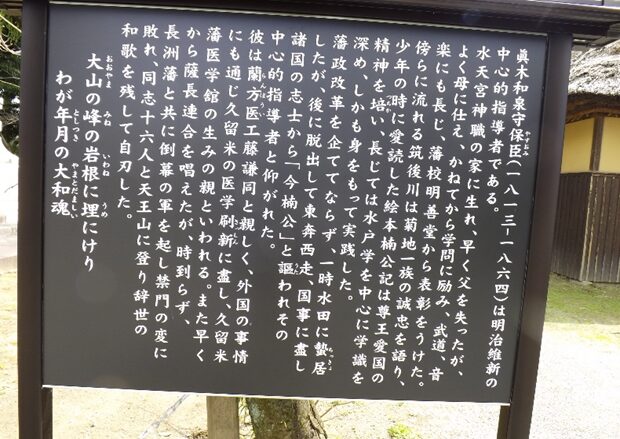 眞木和泉守保臣(一八一三ー一八六四)は明治維新の
やすおみ
中心的指導者である。
水天宮神職の家に生れ、早く父を失ったが、
よく母に仕え、かねてから学問に励み、武道、音
楽にも長じ、藩校明善堂から表彰をうけた。
傍らに流れる筑後川は菊地一族の誠忠を語り、
少年の時に愛読した絵本楠公記は尊王愛国の
精神を培い、長じては水戸学を中心に学識を
深め、しかも身をもって実践した。
藩政改革を企ててならず、一時水田に蟄居
ちっきょ
したが、後に脱出して東奔西走、国事に盡し
諸国の志士から「今楠公」と謳われその
中心的指導者と仰がれた。
彼は蘭方医工藤謙同と親しく、外国の事情
にも通じ久留米の医学刷新に盡し、久留米
藩医学館の生みの親といわれる。また早く
から薩長連合を唱えたが、時到らず、
長洲藩と共に倒幕の軍を起し禁門の変に
敗れ、同志十六人と天王山に登り辞世の
和歌を残して自刃した。
大山の峰の岩根に埋にけり
おおやま みね いわね うめ
わが年月の大和魂
としつき やまとだましい